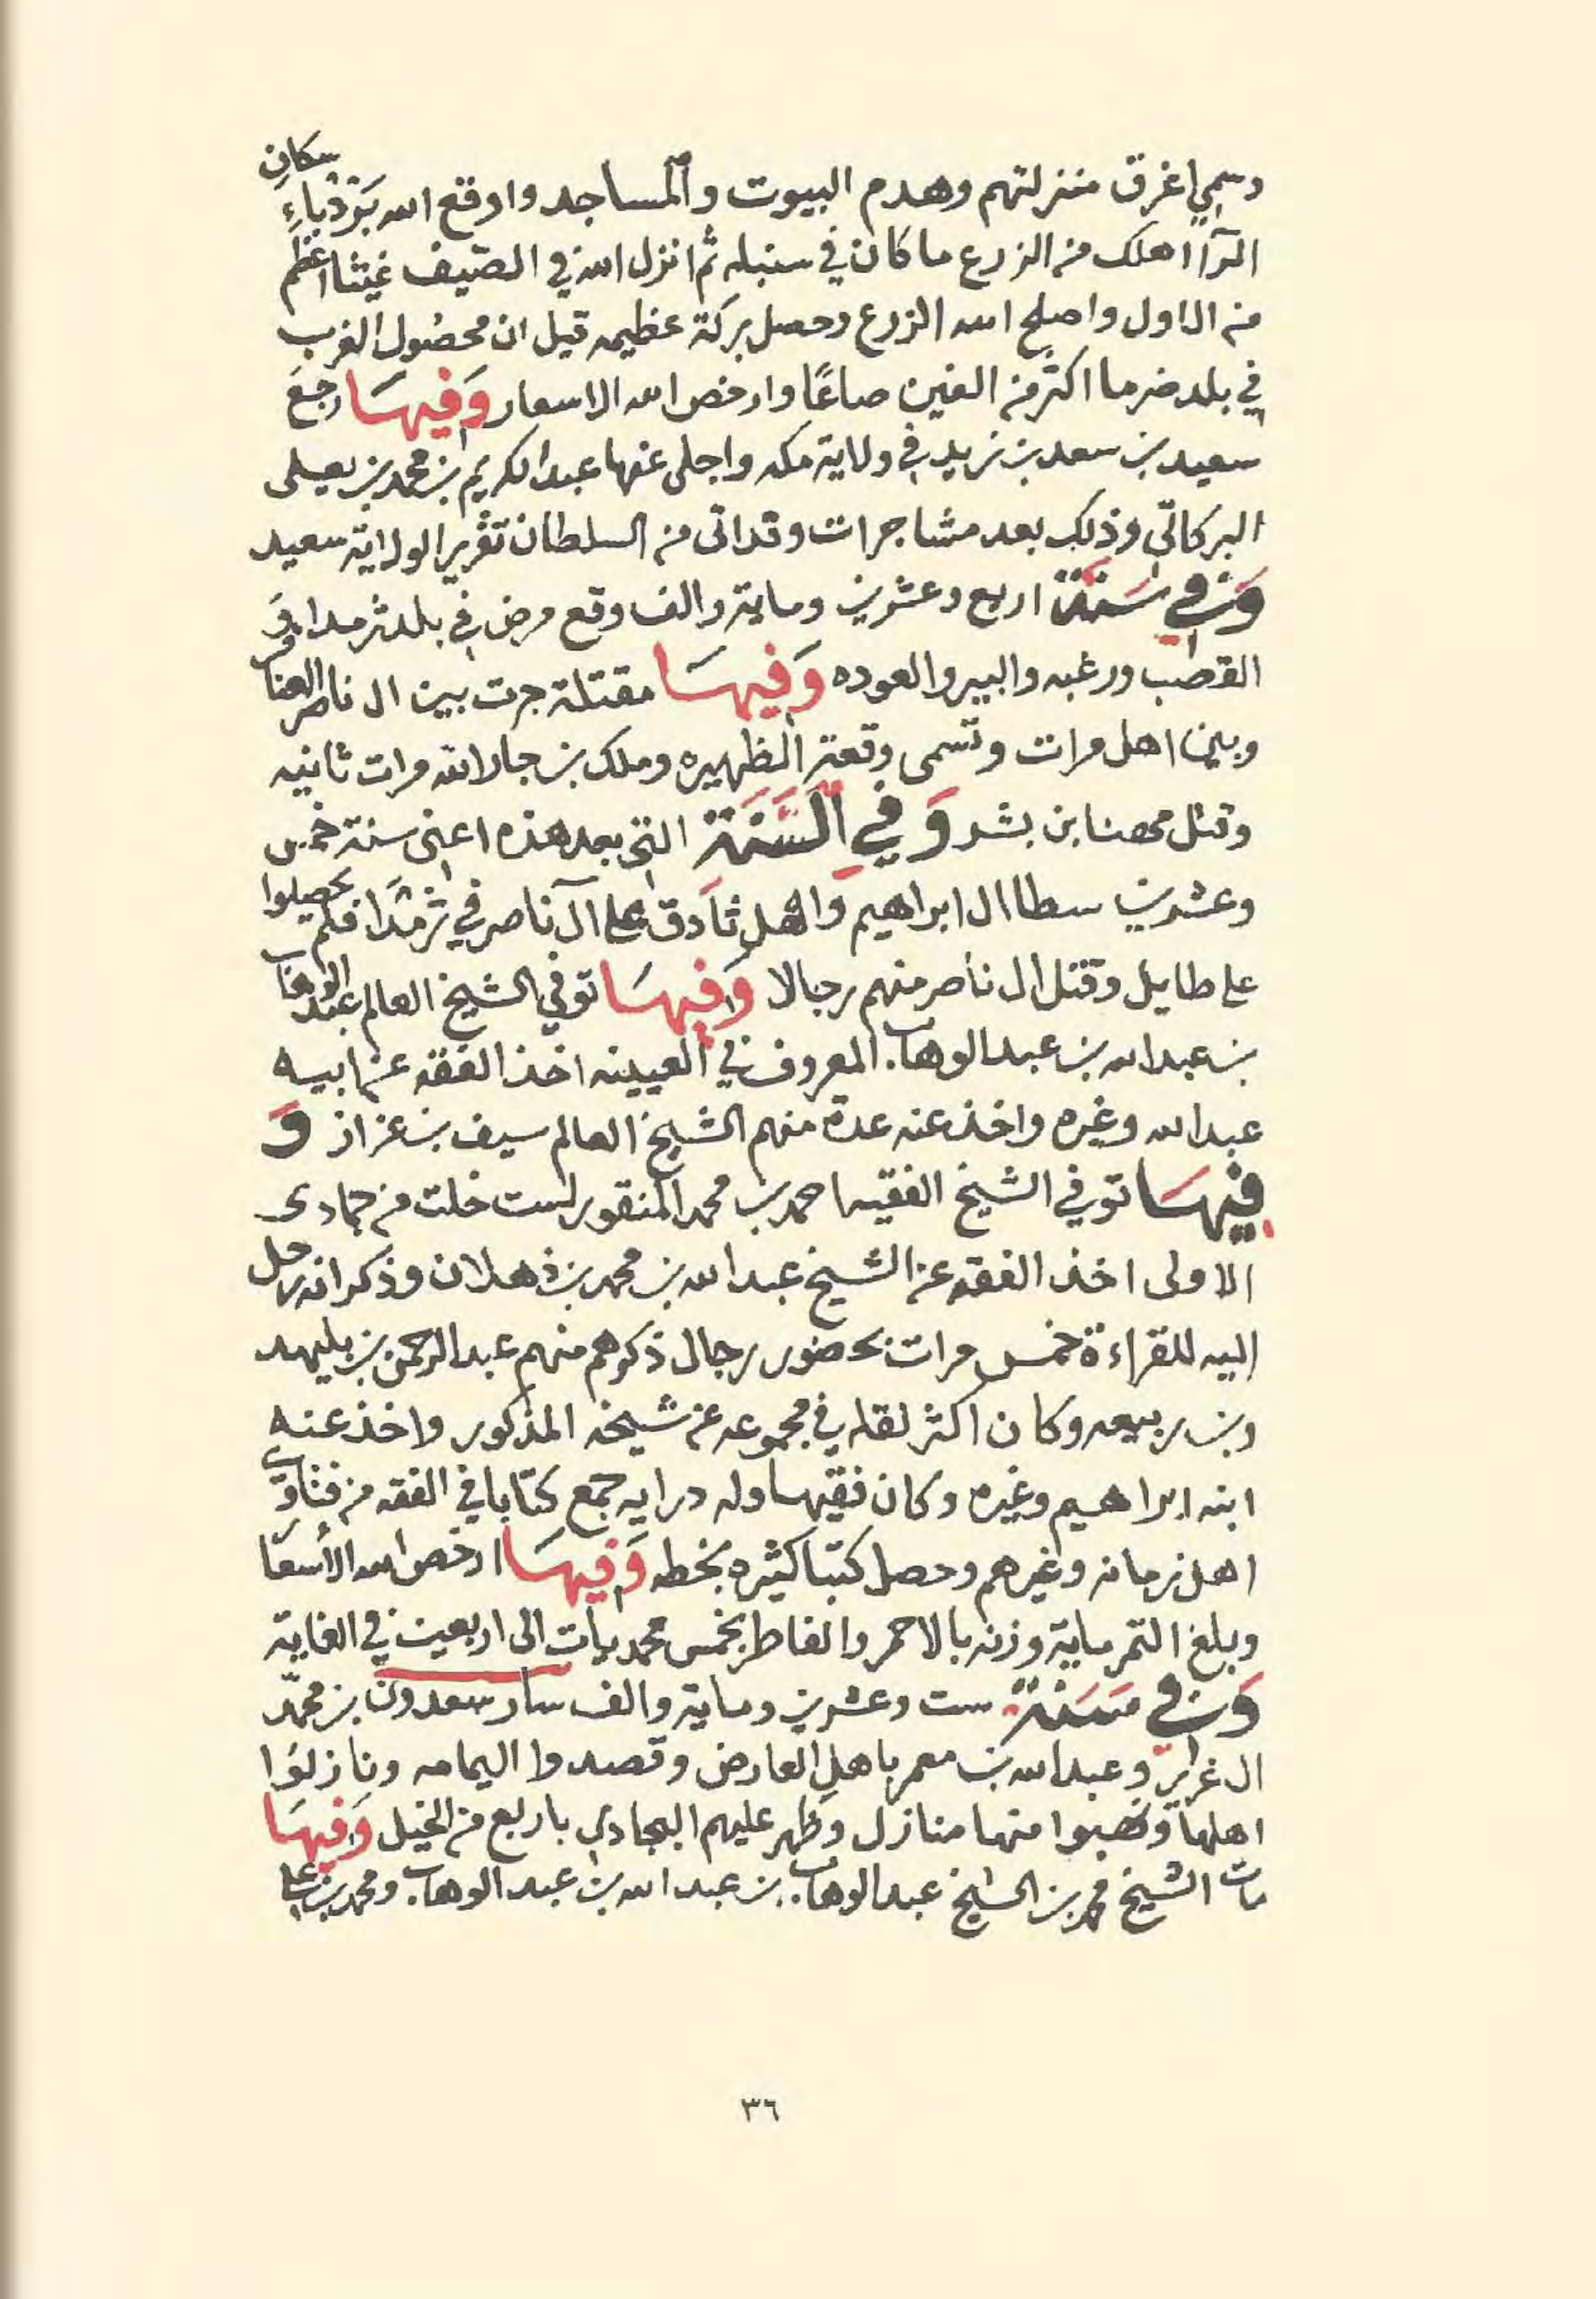 وسمي اغرق منزلتهم وهدم البيوت والمساجد واوقع الله بَرَدْ باءِسكانِ
الرا اهلك من الزرع ما كان في سنبله ثم انزل الله في الصيف غيثا اعظم
من الاول واصلح الله الزرع وحصل بركة عظيمه قيل ان محصول الغرب
في بلد ضرما اكثر من الفين صاعًا وارخص الله الاسعار وَفيهَا رجع
سعيد بن سعد بن زيد في ولاية مكه واجلى عنها عبد الكريم بن محمد بن يعلى
البركاتي وذلك بعد مشاجرات وقد اتى من السلطان تقرير الولاية سعيد
وَفي سَنَة اربع وعشرين وماية والف وقع مرض في بلد ثرمدا وفي
القصب ورغبه والبير والعوده وَفيهَا مقتلة جرت بين ال ناصر العناقر
وبين اهل مرات وتسمى وقعة الظهيره وملك بن جار الله مرات ثانيه
وقتل محصنا بن بشر وَفي السَّنَة التي بعد هذه اعني سنة خمس
وعشرين سطا ال ابراهيم واهل ثادق على آل ناصر في ثرمدا فلم يحصلوا
على طايل وقتل ال ناصر منهم رجالا وَفيهَا توفي الشيخ العالم عبد الوهاب
بن عبد الله بن عبد الوهاب المعروف في العيينه اخذ الفقه عن ابيه
عبد الله وغيره واخذ عنه عدة منهم الشيخ العالم سيف بن عزاز وَ
فيهَا توفي الشيخ الفقيه احمد بن محمد المنقور لست خلت من جمادى
الاولى اخذ الفقه عن الشيخ عبد الله بن محمد بن ذهلان وذكر انه رحل
اليه للقراءة خمس مرات بحضور رجال ذكرهم منهم عبد الرحمن بن بليهد
وبن ربيعه وكان اكثر نقله في مجموعه عن شيخه المذكور واخذ عنه
ابنه ابراهيم وغيره وكان فقيها وله درايه جمع كتابا في الفقه من فتاوي
اهل زمانه وغيرهم وحصل كتبا كثيره بخطه وَفيهَا ارخص الله الأسعا
وبلغ التمر ماية وزنه بالاحمر والفاطر بخمس محمديات الى اربعين في الغاية
وَفي سَنَة ست وعشرين وماية والف سار سعدون بن محمّد
ال غرير وعبد الله بن معمر باهل العارض وقصدوا اليمامه ونازلوا
اهلها ونهبوا منها منازل وظهر عليهم البجادي باربع من الخيل وَفيهَا
مات الشيخ محمد بن الشيخ عبد الوهاب بن عبد الله بن عبد الوهاب ومحمد بن علي
٣٦